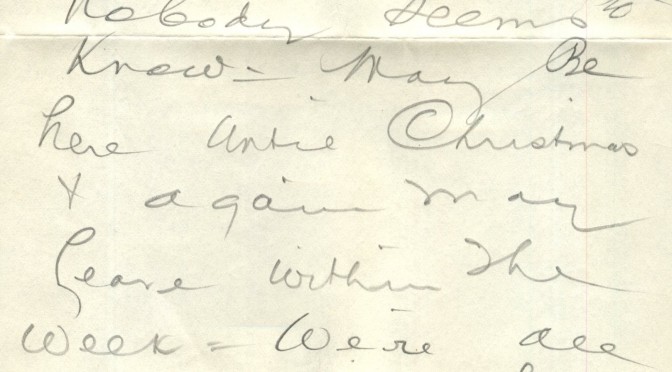 Nobody seems to
Know - May Be
here until Christmas
+ again may
leave within The
week = We're all